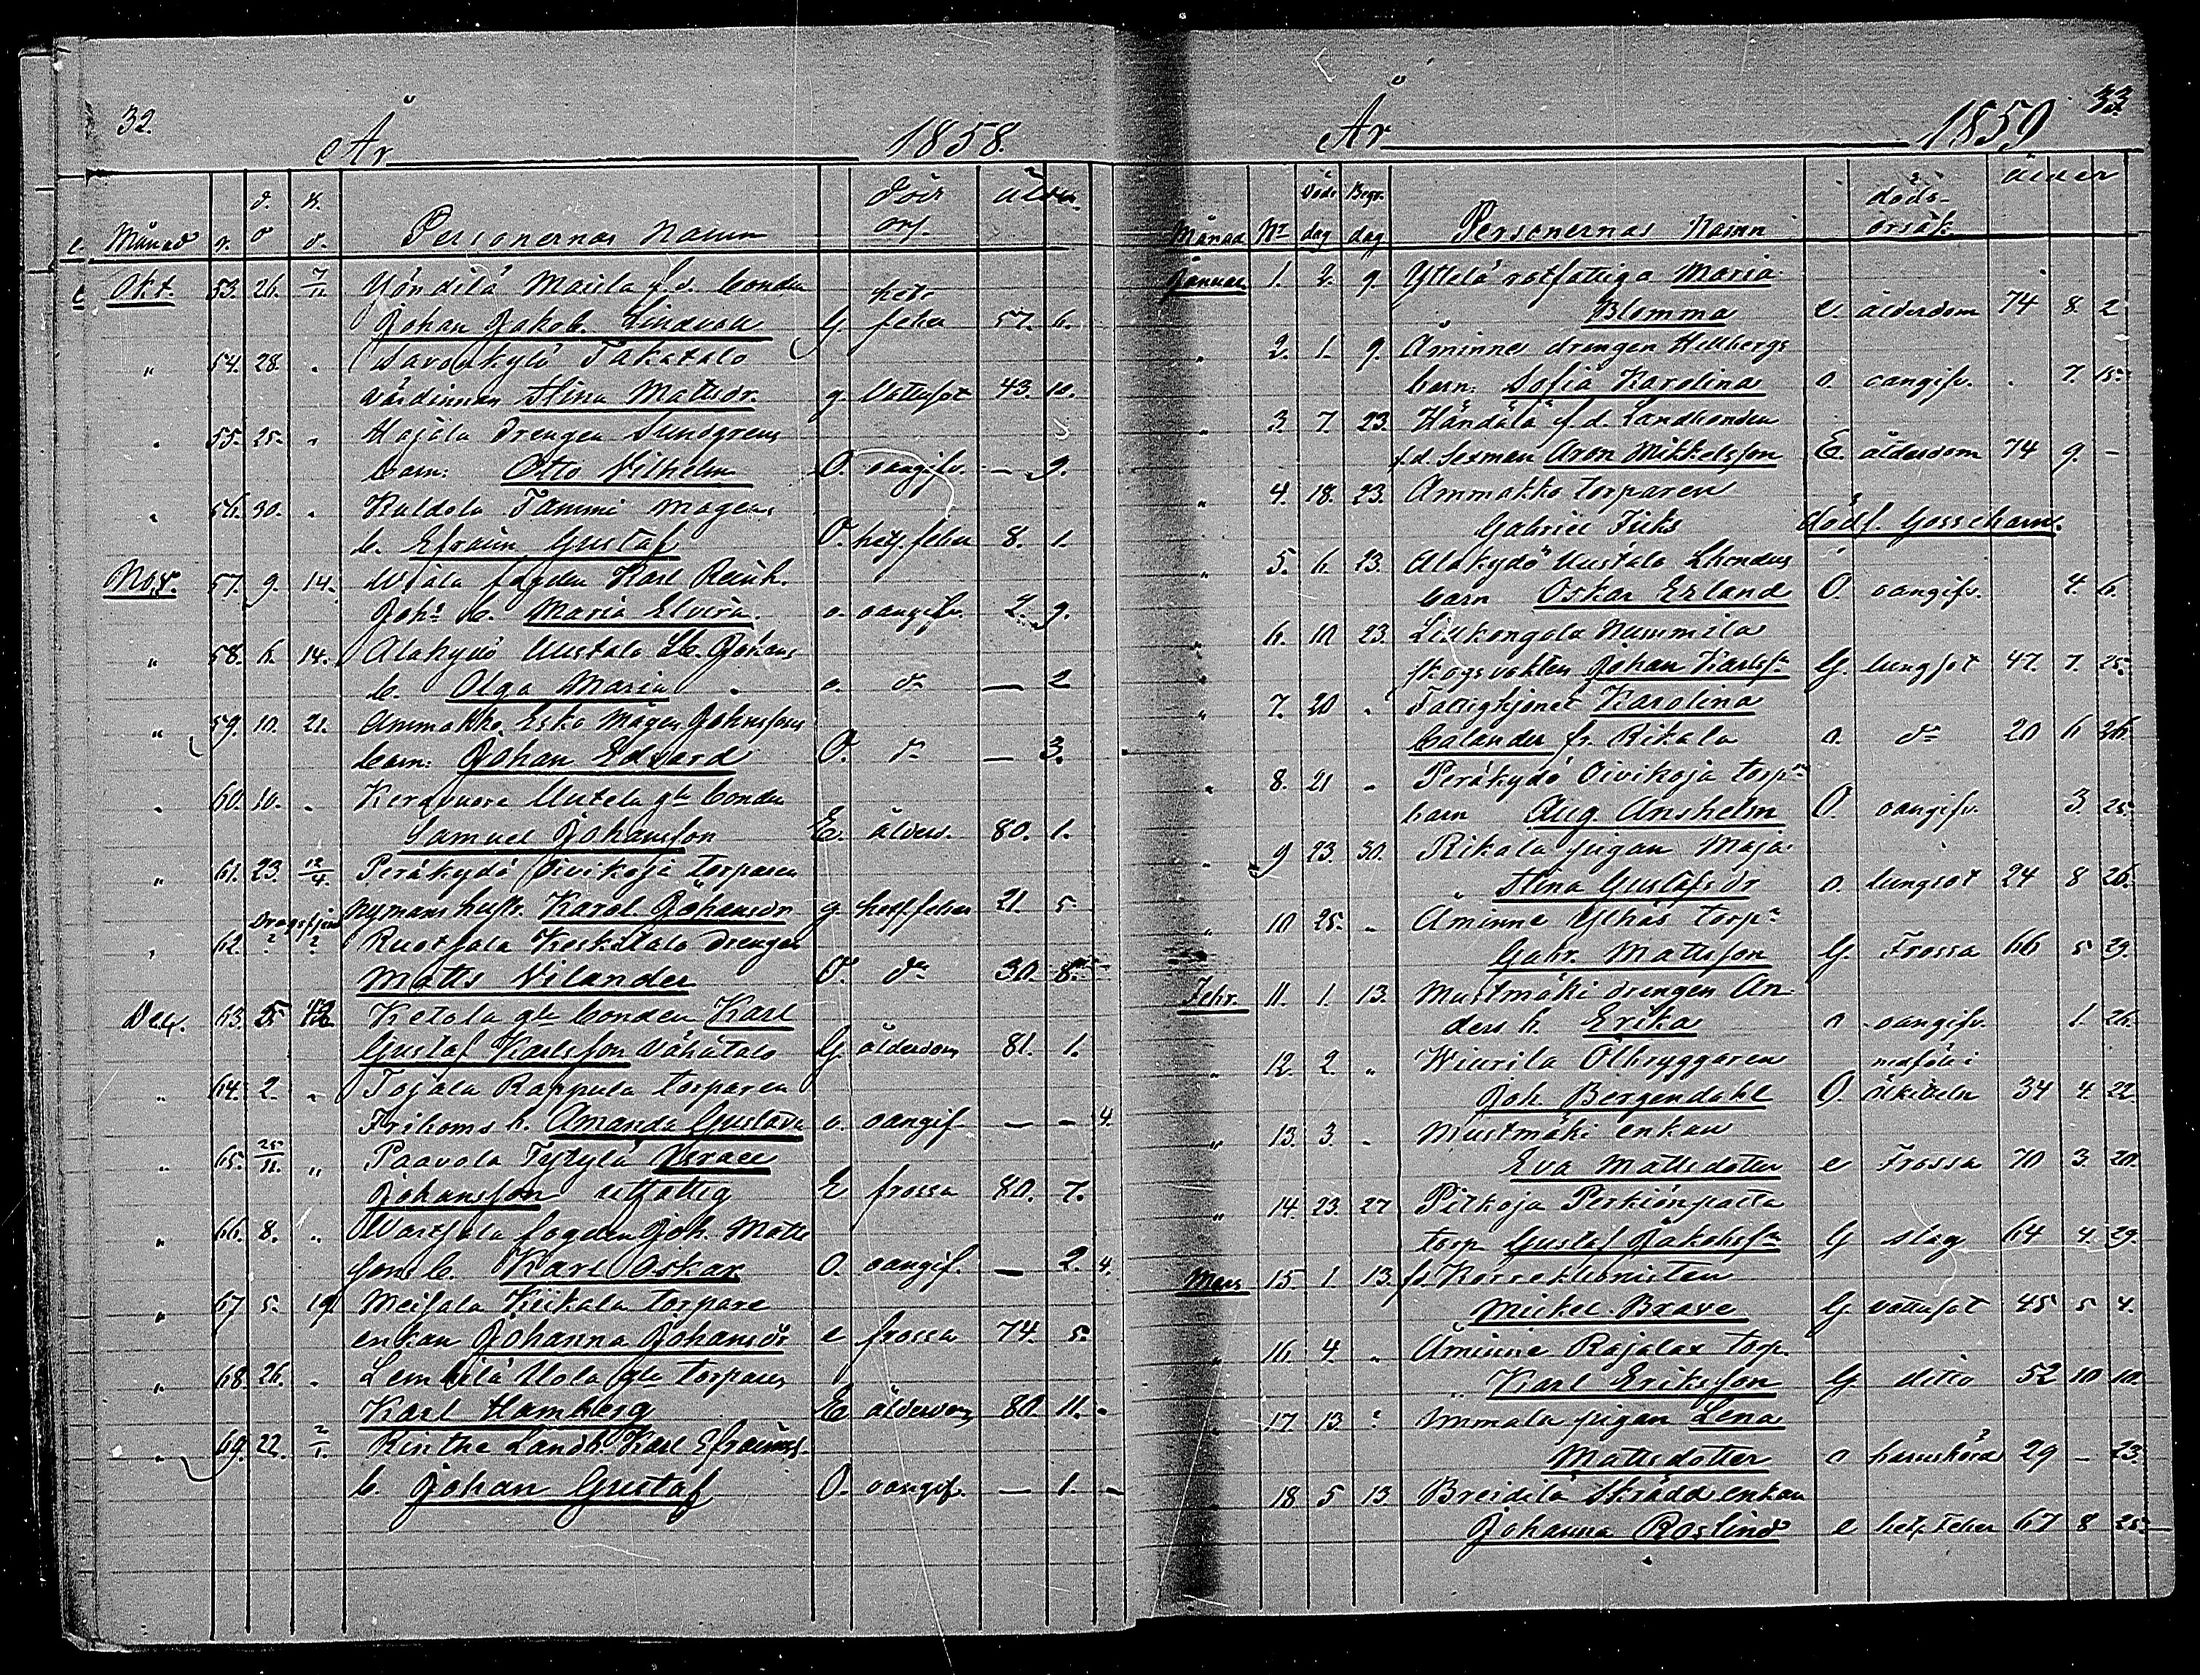 32.
År 1858.
d. b. död ålder.
Månad n. d. d. Personernas Namn ors.
Okt. 53. 26. 7/11 Yöndilä Maula f.d. bonden het.
Johan Jakob Lindvall G. feber 57. 6.
" 54. 28. . Savonkylä Takatalo
värdinnan Stina Mattsdr. g Vattusot 43. 10.
. 55. 25. . Hajala drengen Sundgrens
barn: Otto Vilhelm O. oangifv. — 9.
. 56. 30. . Kaldola Tammi mågens
b. Efraim Gustaf O. het. feber 8. 1.
Nov. 57. 9. 14. fogden Karl Reinh.
Joh: b. Maria Elvira o. oangifv. 2. 9.
" 58. 6. 14. Alakydö Uustalo Lb. Johans
b. Olga Maria o. d:o — 2
" 59. 10. 21. Ammakko Esko Mågen Johanssons
barn: Johan Edvard O. d:o — 3.
. 60. 10. . Kerqvuora Uutela gla bonden
Samuel Johansson E. ålders. 80. 1.
" 61. 23. 12/4. Peräkydö Oivikoja torparen
Nymans hustr. Karol. Johansdr. g. het. feber 21. 5
, 62. ? ? Ruotsala Koskitalo drengen
Matts Vilander O. d:o 30. 8.
Dec. 63. 5. 12. Ketola gla bonden Karl
Gustaf Karlsson Vähätalo G ålderdom 81. 1.
" 64. 2. " Tojala Rappula torparen
Friboms b. Amanda Gustava o. oangif. — - 4.
" 65. 25/11. " Paavola Tytylä Israel
Johansson utfattig E frossa 80. 7.
" 66. 8. " Wartsala fogden Joh. Matts
sons b. Karl Oskar O. oangif. — 2. 4.
" 67 5. 19 Meisala Kiikala torpare
enkan Johanna Johansdr e frossa 74. 5.
" 68. 26. . Lembilä Uola gla torparen
Karl Hamberg E ålderdom 80. 11. -
" 69. 22. 2/1. Kinthe Landb. Karl Efraims.
b. Johan Gustaf O. oangif. — 1. —
33.
År 1859
Död Begr. döds- ålder
Månad No dag dag Personernas Namn orsak
Januar 1. 2. 9. Yttelä rotfattiga Maria
Blomma e. ålderdom 74 8. 2
" 2. 1. 9. Åminne drengen Hellbergs
barn: Sofia Karolina o. oangifv. . 7. 15.
" 3. 7. 23. Händälä f.d. Landbonden
f.d. Sexman Aron Mikkelsson E. ålderdom 74 9. -
" 4. 18. 23. Ammakko torparen
Gabriel Fisks dödf. Gossebarn.
" 5. 6. 23. Alakydö Uustalo Lbondens
barn Oskar Erland O. oangifv. 4. 6.
" 6. 10 23. Liukongala Nummila
skogsvakten Johan Karlss:n G. lungsot 47. 7. 25.
" 7. 20 . Fattighjonet Karolina
Calander fr. Rikala o. d:o 20 6 26
" 8. 21 . Peräkydö Oivikoja torp:n
barn Aug Anshelm O. oangifv. 3. 25.
" 9 23. 30. Rikala pigan Maja
" Stina Gustafsdr o. lungsot 24 8 26.
" 10 25. . Åminne Ylhäs torp:n
Gabr. Mattsson G. Frossa 66 5 29.
Febr. 11. 1. 13. Mustmäki drengen An-
ders b. Erika o oangifv. 1. 26.
" 12. 2. " Wiurila Ölbryggaren
Joh. Bergendahl O. ölkitteln 34 4 22
" 13. 3 . Mustmäki enkan
Eva Mattsdotter e Frossa 70 3. 20.
" 14. 23. 27 Pitkoja Perkiönpalta
torp. Gustaf Jakobss:n G slag 64 4. 29.
Mars 15 1 13. fd. Korrektionisten
Mickel Brave G vattusot 45 5 4.
" 16. 4. " Åminne Rajalax torp.
" Karl Eriksson G. ditto 52 10 10
" 17. 13. " Ummala pigan Lena
Mattsdotter o barnsbörd 29 - 23.
" 18 5 13 Breidilä Skrädd. enkan
Johanna Roslind e het. Feber 67 8 25.